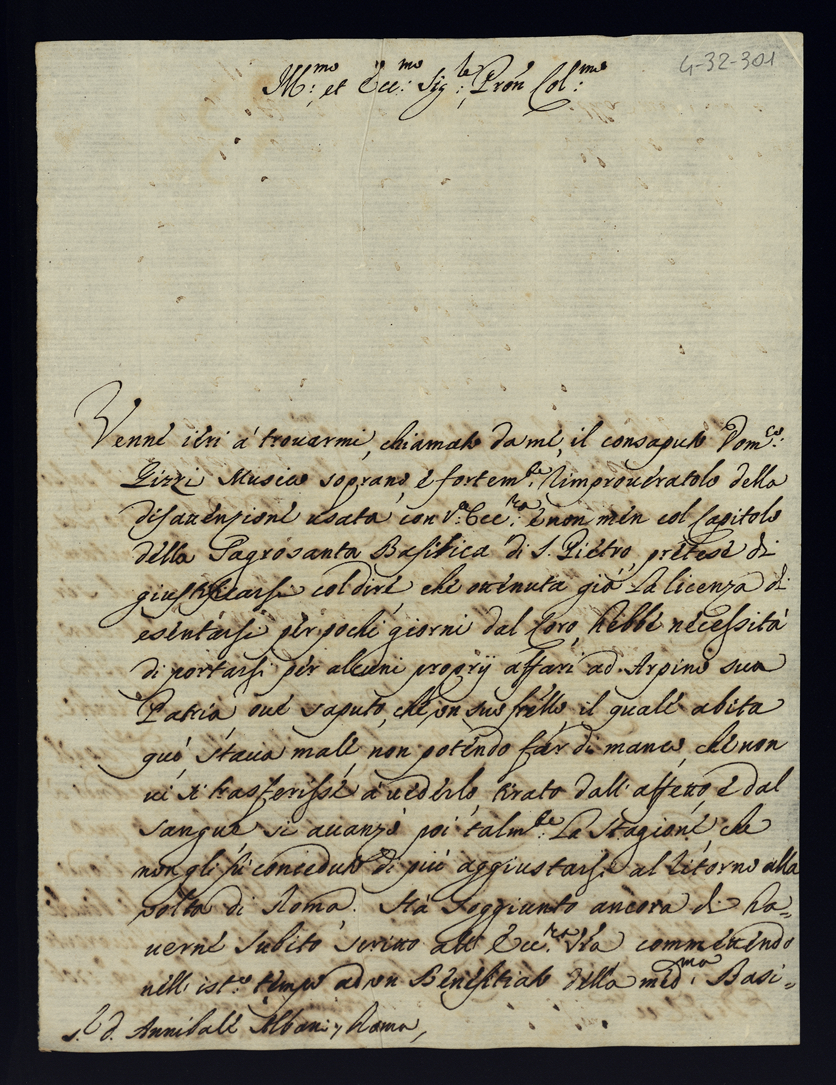 4-32-301
Ill:mo et Ecc:mo Sig:re Pron Col:mo
Venne ieri á trovarmi, chiamato da me, il consaputo Dom:co
Pizzi Musico soprano, e fortem:te rimproveratolo della
disattenzione usata con V:a Ecc:za, e non men col Capitolo
della Sagrosanta Basilica di S. Pietro, pretese di
giustificarsi col dire che ottenuta già la licenza di
esentarsi per pochi giorni dal Coro, hebbe necessità
di portarsi per alcuni proprij affari ad Arpino sua
Patria ove saputo, che un suo frello il quale abita
quà stava male, non potendo far di manco, che non
vi si trasferisse á vederlo, tirato dall'affetto, e dal
sangue si avanzò poi talm:te la stagione che
non gli fù conceduto di più aggiustarsi al ritorno alla
volta di Roma. Hà soggiunto ancora di ha=
verne subito scritto all'Ecc:za Vra commettendo
nell'ist:o tempo ad un Benefitiato della med:ma Basi=
S.r d. Annibale Albani, Roma,